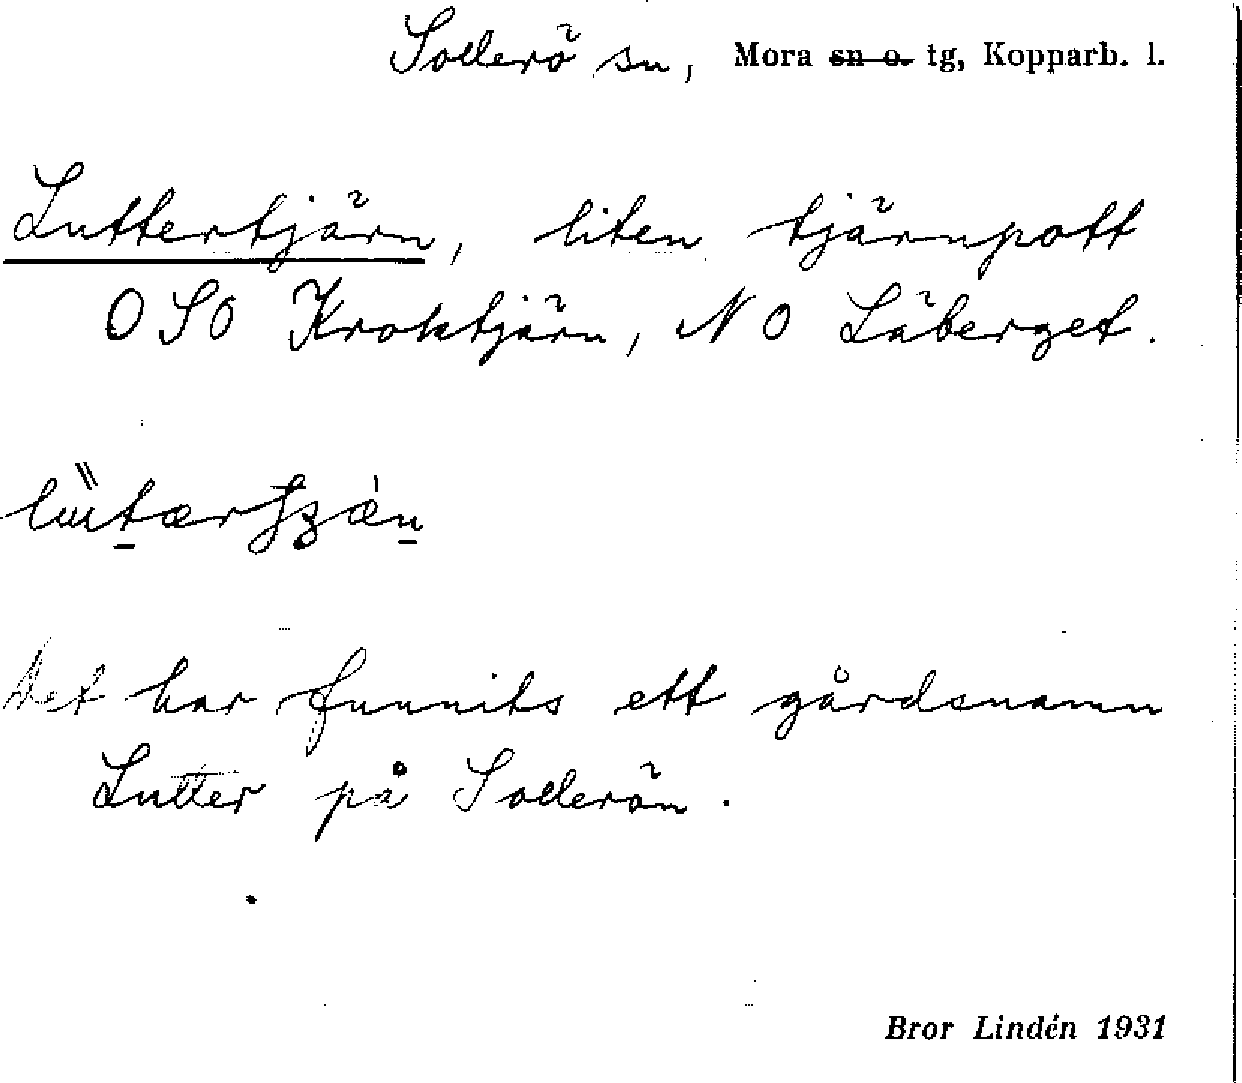 Sollerö sn, Mora sn o. tg, Kopparb. l.
Luttertjärn, liten tjärnpott
OSO Kroktjärn, NO Läberget.
Det har funnits ett gårdsnamn
Lutter på Sollerön.
Bror Lindén 1931